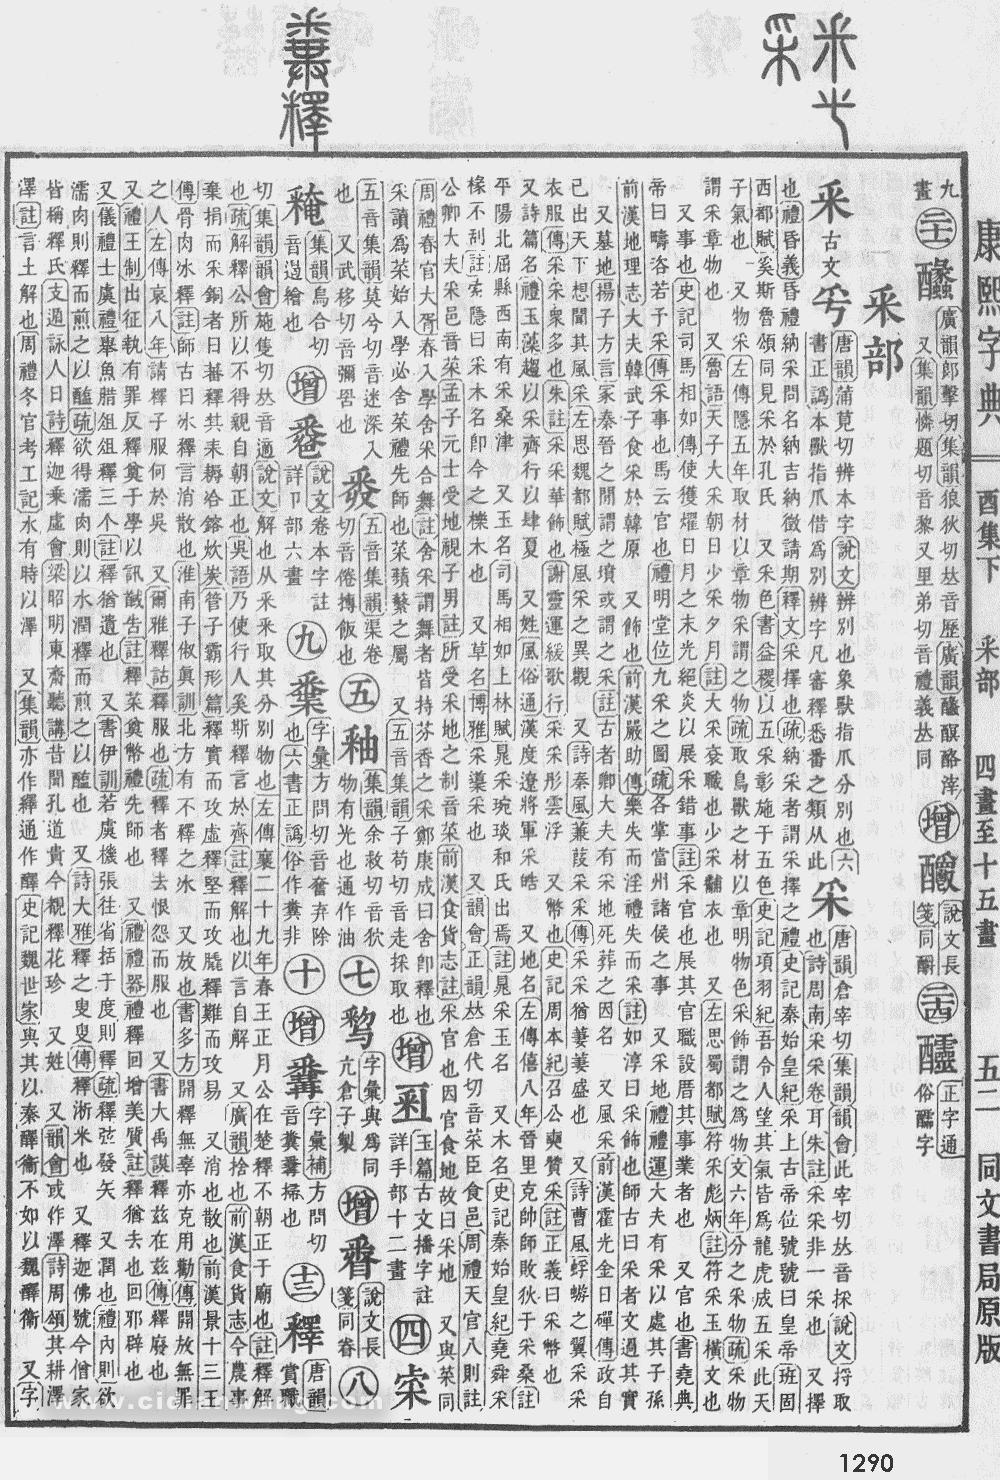 釆
采
康熙字典 酉集下 釆部 四畫至十五畫 五二 同文書局原版
九 廣韻郎擊切集韻狼狄切𠀤音歷廣韻 說文長 正字通
畫 又集韻憐題切音黎又里弟切音禮義𠀤同 箋同醻 俗醽字
釆部
釆 古文 唐韻蒲莧切辨本字說文辨別也象獸指爪分別也六
書正譌本獸指爪借爲別辨字凡審釋悉番之類从此
采 唐韻倉宰切集韻韻會此宰切𠀤音採說文捋取
也詩周南采采卷耳朱註采采非一采也 又擇
也禮昏義昏禮納采問名納吉納徵請期釋文采擇也疏納采者謂采擇之禮史記秦始皇紀采上古帝位號號曰皇帝班固
西都賦奚斯魯頌同見采於孔氏 又采色書益稷以五采彰施于五色史記項羽紀吾令人望其氣皆爲龍虎成五采此天
子氣也 又物采左傳隱五年取材以章物采謂之物疏取鳥獸之材以章明物色采飾謂之爲物文六年分之采物疏采物
謂采章物也 又魯語天子大采朝日少采夕月註大采袞職也少采黼衣也 又左思蜀都賦符采彪炳註符采玉橫文也
又事也史記司馬相如傳使獲燿日月之末光絕炎以展采錯事註采官也展其官職設厝其事業者也 又官也書堯典
帝曰疇咨若予采傳采事也馬云官也禮明堂位九采之國疏各掌當州諸侯之事 又采地禮禮運大夫有采以處其子孫
前漢地理志大夫韓武子食采於韓原 又飾也前漢嚴助傳樂失而淫禮失而采註如淳曰采飾也師古曰采者文過其實
又墓地揚子方言冢秦晉之閒謂之墳或謂之采註古者卿大夫有采地死葬之因名 又風采前漢霍光金日磾傳政自
己出天下想聞其風采左思魏都賦極風采之異觀 又詩秦風蒹葭采采傳采采猶萋萋盛也 又詩曹風蜉蝣之翼采采
衣服傳采采衆多也朱註采采華飾也謝靈運緩歌行采采彤雲浮 又幣也史記周本紀召公奭贊采註正義曰采幣也
又詩篇名禮玉藻趨以采齊行以肆夏 又姓風俗通漢度遼將軍采皓 又地名左傳僖八年晉里克帥師敗狄于采桑註
平陽北屈縣西南有采桑津 又玉名司馬相如上林賦晁采琬琰和氏出焉註晁采玉名 又木名史記秦始皇紀堯舜采
椽不刮註索隱曰采木名卽今之櫟木也 又草名博雅采𦺈采也 又韻會正韻𠀤倉代切音菜臣食邑周禮天官八則註
公卿大夫采邑音菜孟子元士受地視子男註所受采地之制音菜前漢食貨志註采官也因官食地故曰采地 又與菜同
周禮春官大胥春入學舍采合舞註舍采謂舞者皆持芬香之采鄭康成曰舍卽釋也
采讀爲菜始入學必舍菜禮先師也菜蘋蘩之屬 又五音集韻子苟切音走採取也
增 玉篇古文播字註詳手部十二畫 四
五音集韻莫兮切音迷深入也 又武移切音彌罟也
五音集韻渠卷切音倦摶飯也
五 釉 集韻余救切音狖物有光也通作油
七 字彙與爲同亢倉子製
增 說文長箋同番 八
集韻烏合切音遏繪也
增 說文卷本字註詳卩部六畫
九 字彙方問切音奮弃除也六書正譌俗作糞非
十 增 字彙補方問切音糞䆏掃也
十三 釋 唐韻賞職
切集韻韻會施隻切𠀤音適說文解也从釆釆取其分別物也左傳襄二十九年春王正月公在楚釋不朝正于廟也註釋解
也疏解釋公所以不得親自朝正也吳語乃使行人奚斯釋言於齊註釋解也以言自解 又廣韻捨也前漢食貨志今農事
棄捐而采銅者日蕃釋其耒耨冶鎔炊炭管子霸形篇釋實而攻虛釋堅而攻脃釋難而攻易 又消也散也前漢景十三王
傳骨肉冰釋註師古曰冰釋言消散也淮南子俶眞訓北方有不釋之冰 又放也書多方開釋無辜亦克用勸傳開放無罪
之人左傳哀八年請釋子服何於吳 又爾雅釋詁釋服也疏釋者釋去恨怨而服也 又書大禹謨釋茲在茲傳釋廢也
又禮王制出征執有罪反釋奠于學以訊馘告註釋菜奠幣禮先師也 又禮禮器禮釋回增美質註釋猶去也回邪辟也
又儀禮士虞禮舉魚腊俎俎釋三个註釋猶遺也 又書伊訓若虞機張往省括于度則釋疏釋弦發矢 又潤也禮內則欲
濡肉則釋而煎之以醢疏欲得濡肉則以水潤釋而煎之以醢也 又詩大雅釋之叟叟傳釋淅米也 又釋迦佛號今僧家
皆稱釋氏支遁詠人日詩釋迦乘虛會梁昭明東齋聽講昔聞孔道貴今覩釋花珍 又姓 又韻會或作澤詩周頌其耕澤
澤註言土解也周禮冬官考工記水有時以澤 又集韻亦作繹通作醳史記魏世家與其以秦醳衞不如以魏醳衞 又字
1290